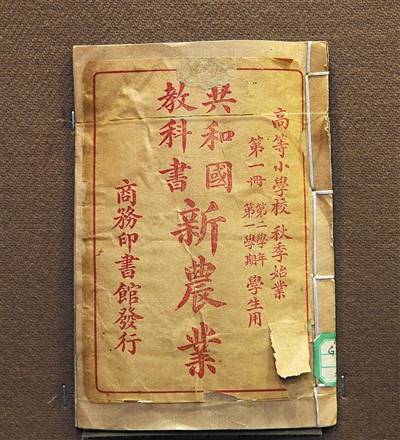 高等小學校 秋季始業
第一冊 第二學年 第一學期 學生用
共和國
教科書
新農業
商務印書館發行